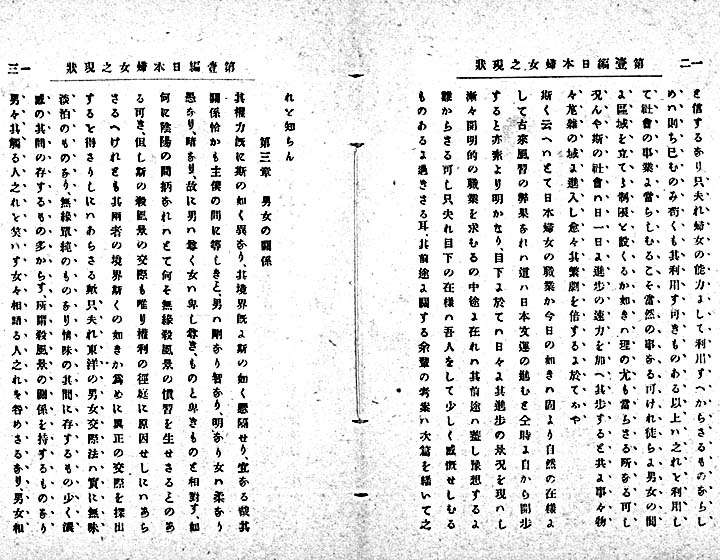 一二 第壹編日本婦女之現狀
を信するあり只夫れ婦女の能力よして利用すへからさるものあらし
めハ則ち已むのみ苟くも其利用す可きものある以上ハ之れを利用し
て社會の事業よ當らしむるこそ當然の事ある可けれ徒らよ男女の間
よ區域を立てゝ制限を設くるか如きハ理の尤も當らさる所ある可し
况んや斯の社會ハ日一日よ進步の速力を加へ其步すると共よ事々物
々尨雜の域よ進入し愈々其繁劇を倍するよ於てをや
斯く云へハとて日本婦女の職業か今日の如きハ固より自然の在樣よ
して古來風習の弊果あれハ追ハ日本文運の進むと仝時よ自から開步
すると亦素より明かあり、目下よ於てハ日々よ其進步の狀况を現ハし
漸々開明的の職業を求むるの中途よ在れハ其前途ハ藍し豫想するよ
難からさる可し只夫れ目下の在樣ハ吾人をして少しく感慨せしむる
ものあるよ過きさる耳、其前途よ關する余輩の考案ハ次篇を繙いて之
一三 第壹編日本婦女之現狀
れを知らん
第三章 男女の關係
其權力旣に斯の如く異あり、其境界旣よ斯の如く懸隔せり、宜ある哉其
關係恰かも主僕の間に等しきと、男ハ剛あり智あり、明あり女ハ柔あり
愚あり、暗あり、故に男ハ尊く女ハ卑し尊き、ものと卑きものと相對す、如
何に陰陽の間柄あれハとて何そ無緣殺風景の慣習を生せさるとのあ
る可き、但し斯の殺風景の交際も唯り權利の徑庭に原因せしにハあら
さるへけれとも其兩者の境界斯くの如きか爲めに異正の交際を探出
するを得さりしにハあらさる歟只夫れ東洋の男女交際法ハ實に無味
淡泊のものあり、無緣單純のものあり情味の其間に存するもの少く濃
感の其間の存するもの多からす、所謂殺風景の關係を持するものあり
男々其觸る人之れを笑ハす女々相語る人之れを咎めさるあり、男女相